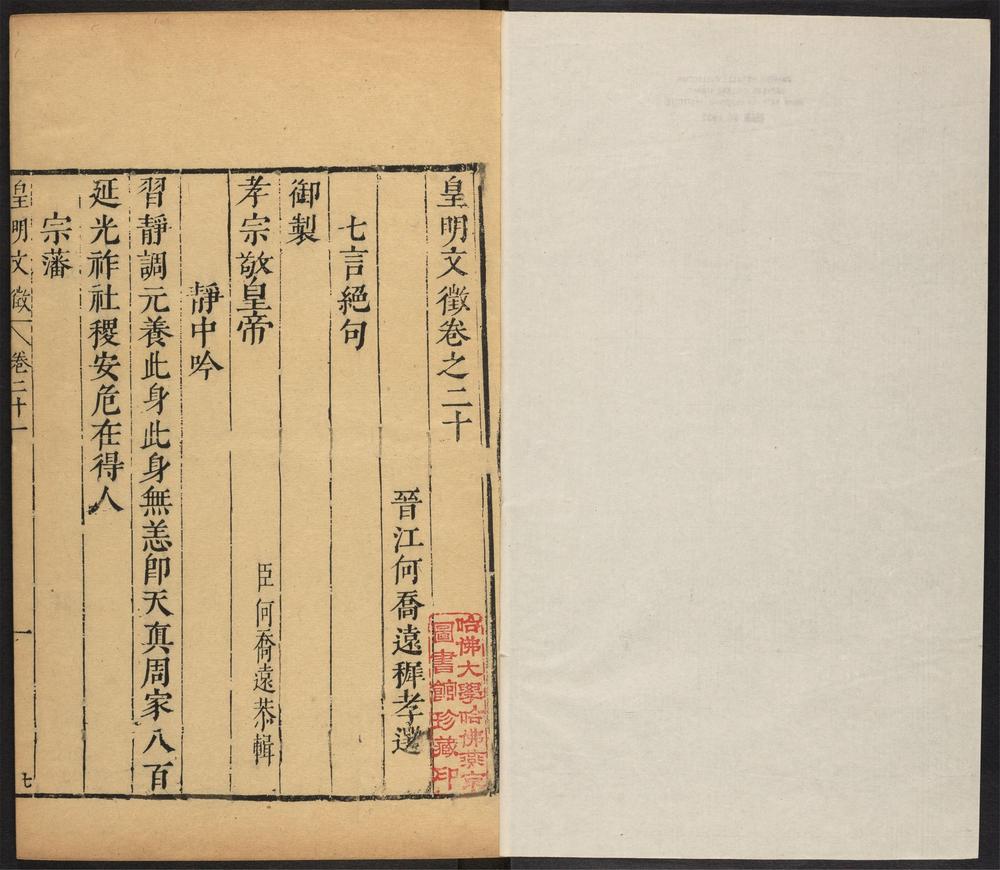 皇明文徵卷之二十
晉江何喬遠穉孝選
七言絕句
御製
孝宗敬皇帝
臣何喬遠恭輯
靜中吟
習靜調元養此身此身無恙卽天眞周家八百
延光祚社稷安危在得人
宗藩
皇明文徵
卷二十一
一
七
哈佛大學哈佛燕京
圖書館珍藏印